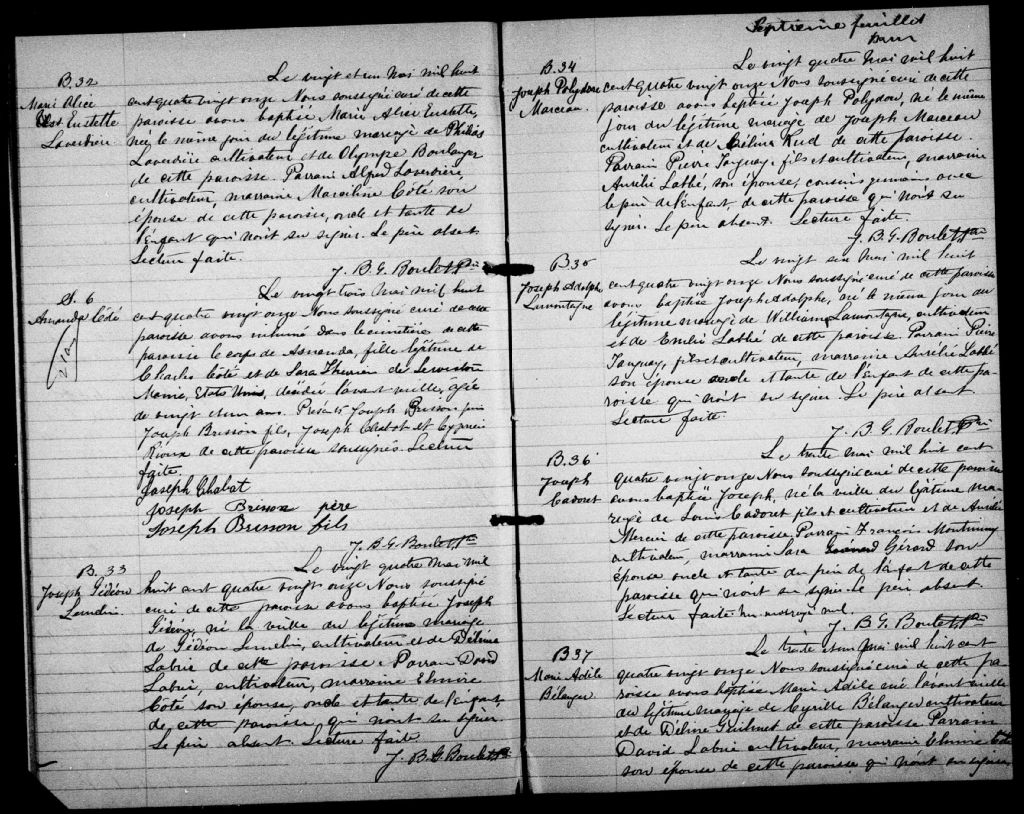 B. 32
Marie Alice
Eustelle
Laverdière
Le vingt et un Mai mil huit
cent quatre vingt onze Nous soussigné curé de cette
paroisse avons baptisé Marie Alice Eustelle,
née le même jour du légitime mariage de Philéas
Laverdière cultivateur et de Olympe Boulanger
de cette paroisse. Parrain Alfred Laverdière,
cultivateur, marraine Marceline Côté son
épouse de cette paroisse, oncle et tante de
l'enfant qui n'ont su signer. Le père absent
Lecture faite.
J. B. G. Boulet Ptre
S. 6
Amanda Côté
21 ans
Le vingt trois Mai mil huit
cent quatre vingt onze Nous soussigné curé de cette
paroisse avons inhumé dans le cimetière de cette
paroisse le corps de Amanda, fille légitime de
Charles Côté et de Sara Therrien de Lewiston
Maine, Etats Unis, décédée l'avant veille, agée
de vingt et un ans. Présents Joseph Brisson père
Joseph Brisson fils, Joseph Chabot et Cyprien
Rioux de cette paroisse soussignés. Lecture
faite.
Joseph Chabat
Joseph Brisson père
Joseph Brisson fils
J. B. G. Boulet Ptre
B. 33
Joseph Gédéon
Lemelin
Le vingt quatre Mai mil
huit cent quatre vingt onze Nous soussigné
curé de cette paroisse avons baptisé Joseph
Gédéon, né la veille du légitime mariage
de Gédéon Lemelin, cultivateur et de Délima
Labrie de cette paroisse. Parrain David
Labrie, cultivateur, marraine Elmire
Coté son épouse, oncle et tante de l'enfant,
de cette paroisse qui n'ont su signer
Le père absent. Lecture faite
J. B. G. Boulet Ptre
Septieme feuillet
B. 34
Joseph Polydore
Marceau
Le vingt quatre Mai mil huit
cent quatre vingt onze Nous soussigné curé de cette
paroisse avons baptisé Joseph Polydore, né le même
jour du légitime mariage de Joseph Marceau
cultivateur et de Célina de cette paroisse.
Parrain Pierre Tanguay, fils et cultivateur, marraine
Aurélie Labbé, son épouse, cousins germains avec
le père de l'enfant, de cette paroisse qui n'ont su
signer. Le père absent. Lecture faite.
J. B. G. Boulet Ptre
B 35
Joseph Adolphe
Lamontagne
Le vingt six Mai mil huit
cent quatre vingt onze Nous soussigné curé de cette paroisse
avons baptisé Joseph Adolphe, né le même jour du
légitime mariage de William Lamontagne, cultivateur
et de Emélie Labbé de cette paroisse. Parrain Pierre
Tanguay, fils et cultivateur, marraine Aurélie Labbé
son épouse oncle et tante de l'enfant de cette pa-
roisse qui n'ont su signer. Le père absent
Lecture faite.
J. B. G. Boulet Ptre
B. 36
Joseph
Cadoret
Le trente Mai mil huit cent
quatre vingt onze Nous soussigné curé de cette paroisse
avons baptisé Joseph, né la veille du légitime ma-
riage de Louis Cadoret fils et cultivateur et de Aurélie
Mercier de cette paroisse. Parrain François Montminy
cultivateur, marraine Sara Gérard son
épouse oncle et tante du père de l'enfant de cette
paroisse qui n'ont su signer. Le père absent
Lecture faite. nul.
J. B. G. Boulet Ptre
B 37
Marie Adèle
Bélanger
Le trente et un Mai mil huit cent
quatre vingt onze Nous soussigné curé de cette pa-
roisse avons baptisé Marie Adèle née l'avant veille
du légitime mariage de Cyrille Bélanger cultivateur
et de Délina Guilmet de cette paroisse Parrain
David Labrie cultivateur, marraine Elmire Coté
son épouse de cette paroisse qui n'ont su signer